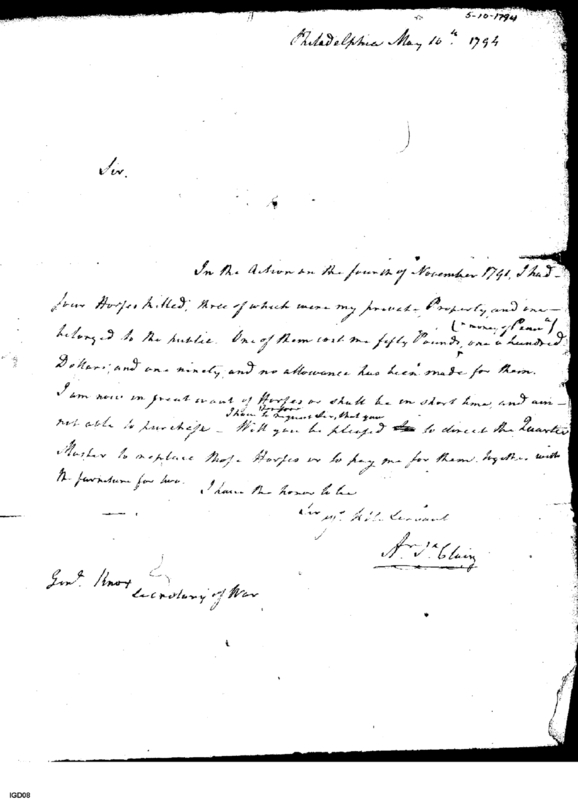 5-10-1794
Philadelphia May 10th. 1794
Sir.
In the Action on the fourth of November 1791. I had
four Horses killed; three of which were my private Property, and one
(money of Penna)
belonged to the public. One of them cost me fifty Pounds, one a hundred
Dollars; and one ninety, and no allowance has been made for them.
I am now in great want of Horses or shall be in short time, and am
I have therefore to request Sir, that you
not able to purchase – Will you be pleased to direct the Quarter
Master to replace those Horses or to pay me for them together with
the furniture for two.
I have the honor to be
Sir yr. Hble Servant
Ar. St. Clair
Genl. Knox
Secretary of War
IGD08